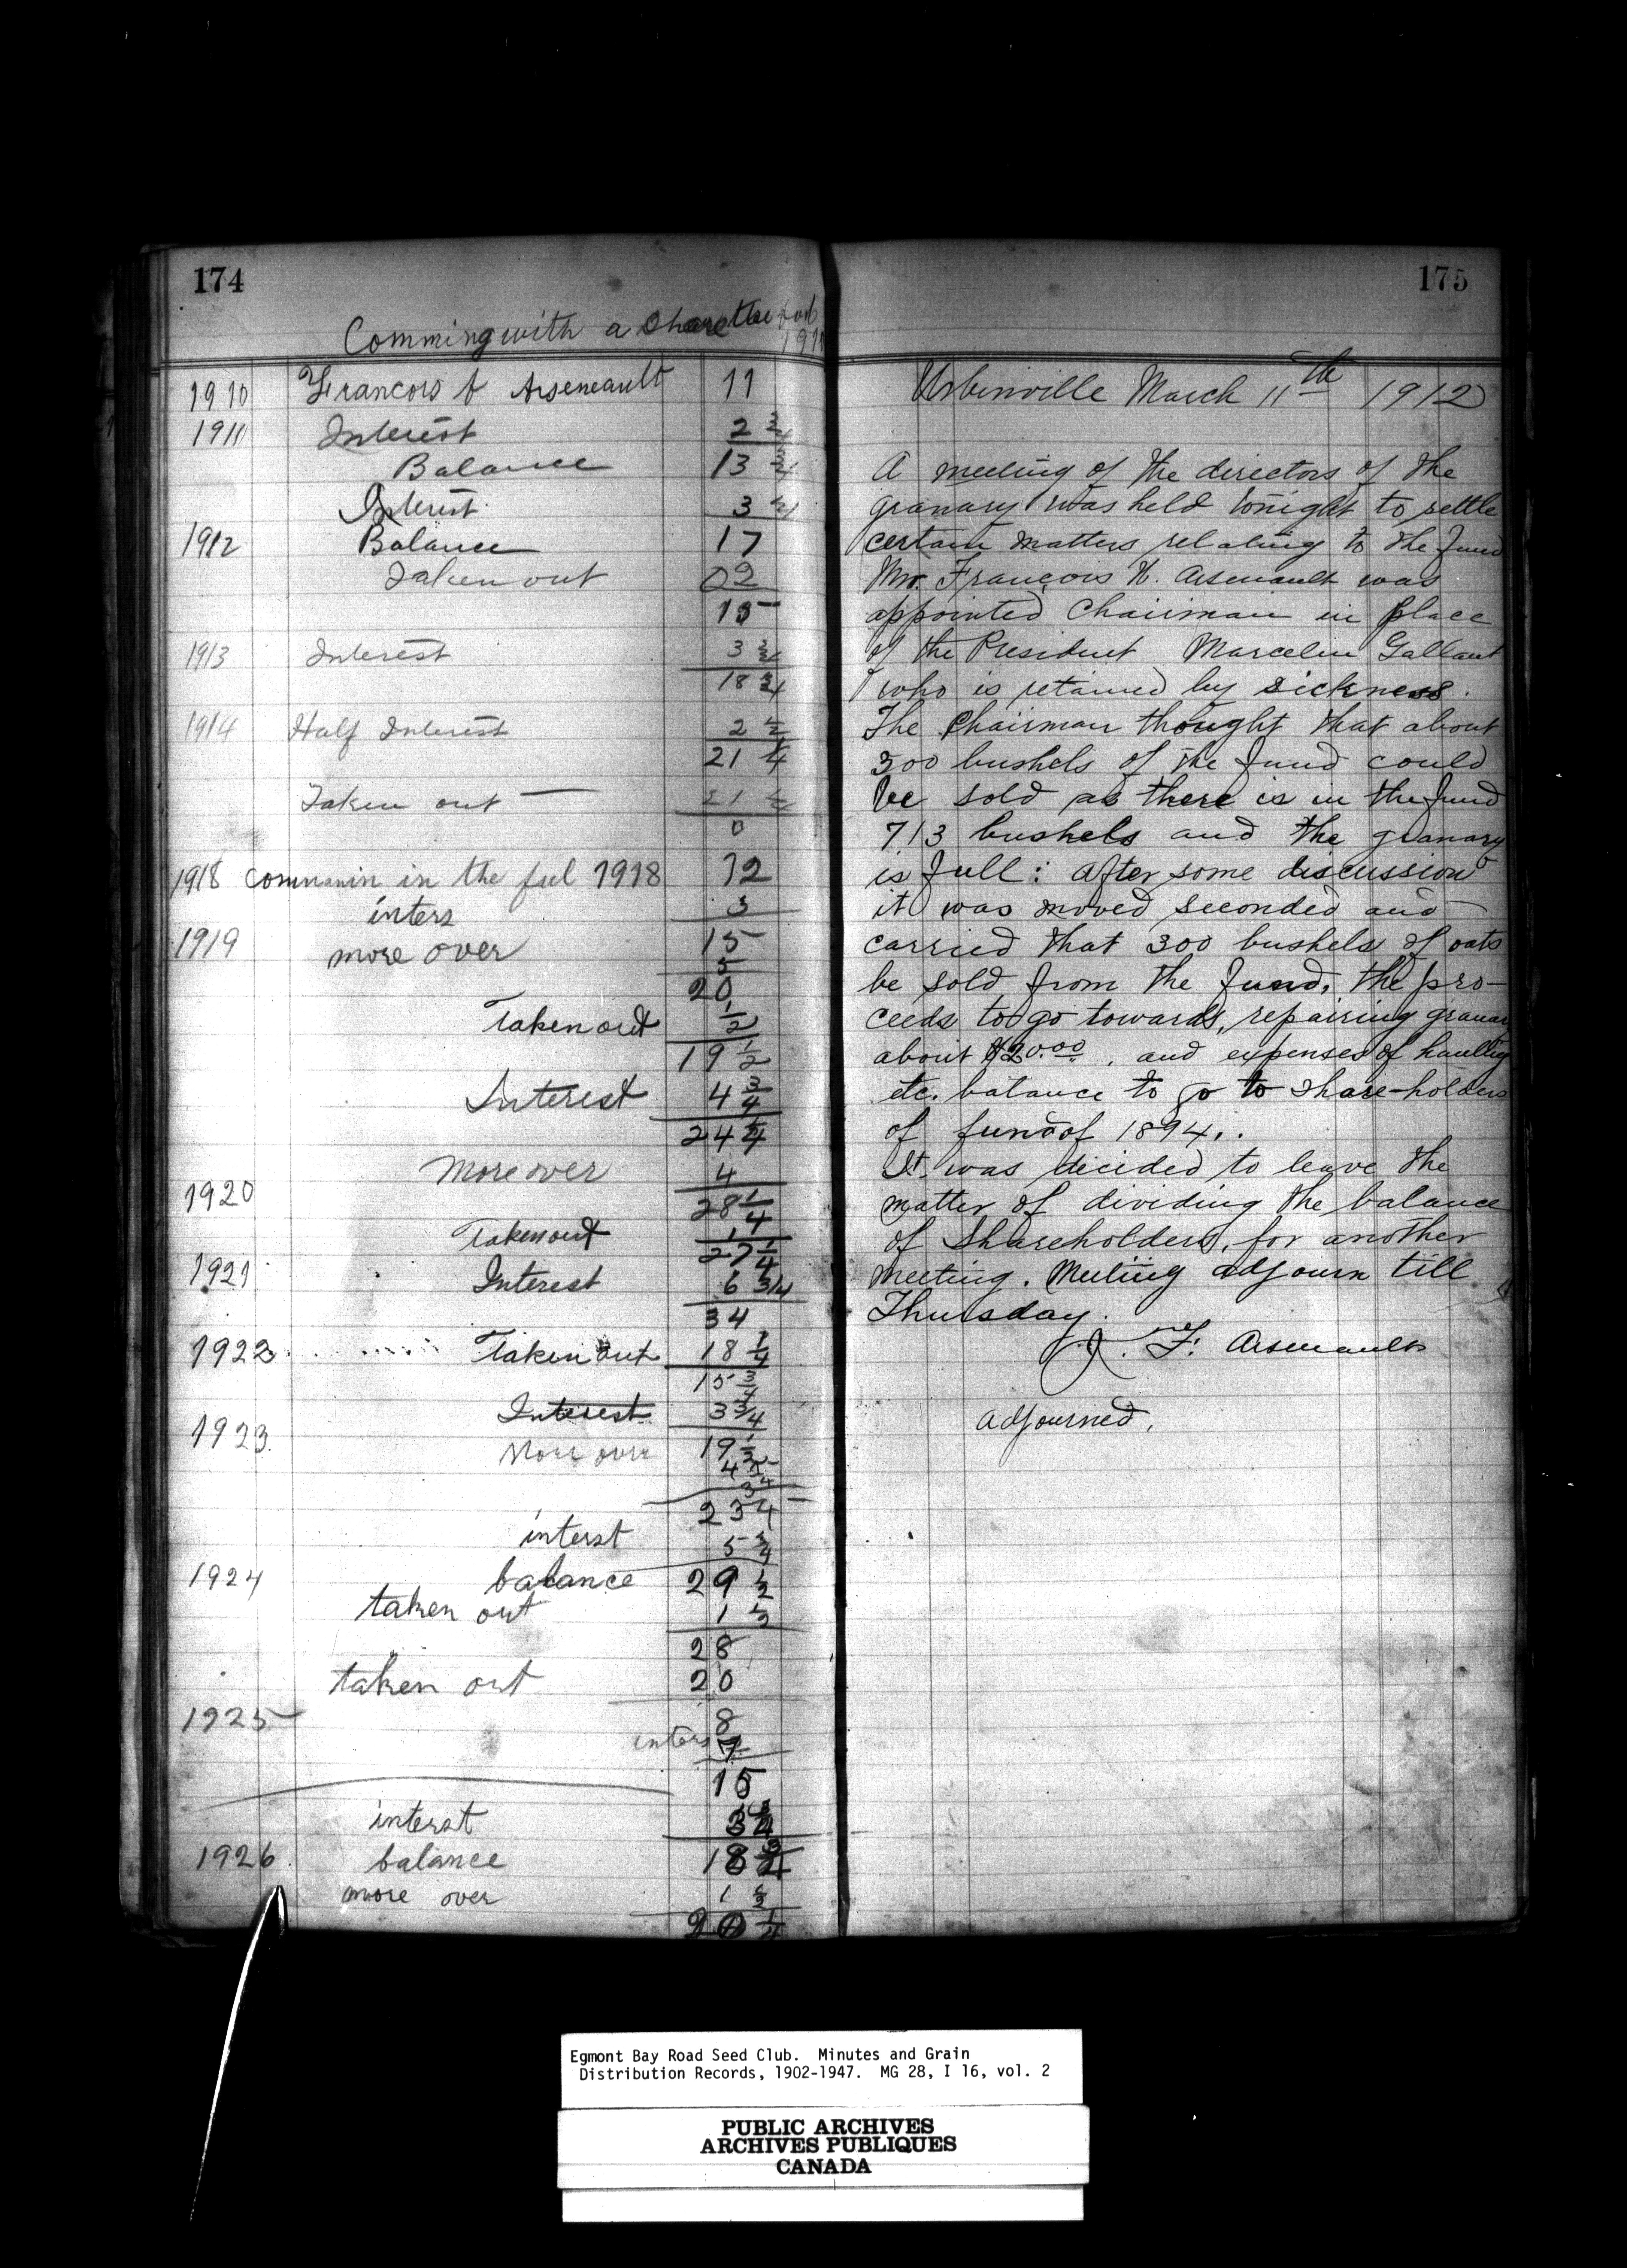 174
Comming with a Share the
1910 Francois f Arseneault 11
1911 Interest 2 3/4
Balance 13 3/4
Interest 3 1/4
1912 Balance 17
Taken out 02
15
1913 Interest 3 3/4
18 3/4
1914 Half Interest 2 1/2
21 1/4
Taken out 21 1/4
0
1918 in the fal 1918 12
inters 3
1919 more over 15
5
20
Taken out 1/2
19 1/2
Interest 4 3/4
24 1/4
More over 4
1920 28 1/4
Taken out 1
27 1/4
1921 Interest 6 3/4
34
1922 Taken out 18 1/4
15 3/4
Interest 3 3/4
1923 19 1/2
More over 4
23 3/4
interst 5 3/4
1924 balance 29 1/2
taken out 1 1/2
28
taken out 20
1925 8
inters 7
15
interst 3 3/4
1926 balance 18 3/4
more over 1 1/2
20 1/4
175
Urbinville March 11th 1912
A meeting of the directors of the
granary was held tonight to settle
certain matters relating to the fund
Mr. François H. Arsenault was
appointed Chairman in place
of the President Marcelin Gallant
who is retained by sickness.
The Chairman thought that about
300 bushels of the fund could
be sold as there is in the fund
713 bushels and the granary
is full: After some discussion
it was moved seconded and
carried that 300 bushels of oats
be sold from the fund, the pro-
ceeds to go towards, repairing granary
about $20.00, and expenses of haulling
etc. balance to go to share-holders
of fund of 1894..
It was decided to leave the
matter of dividing the balance
of Shareholders, for another
meeting. Meeting adjourn till
Thursday.
J. F. Arsenault
adjourned,
Egmont Bay Road Seed Club. Minutes and Grain
Distribution Records, 1902-1947. MG 28, I 16, vol. 2
PUBLIC ARCHIVES
ARCHIVES PUBLIQUES
CANADA